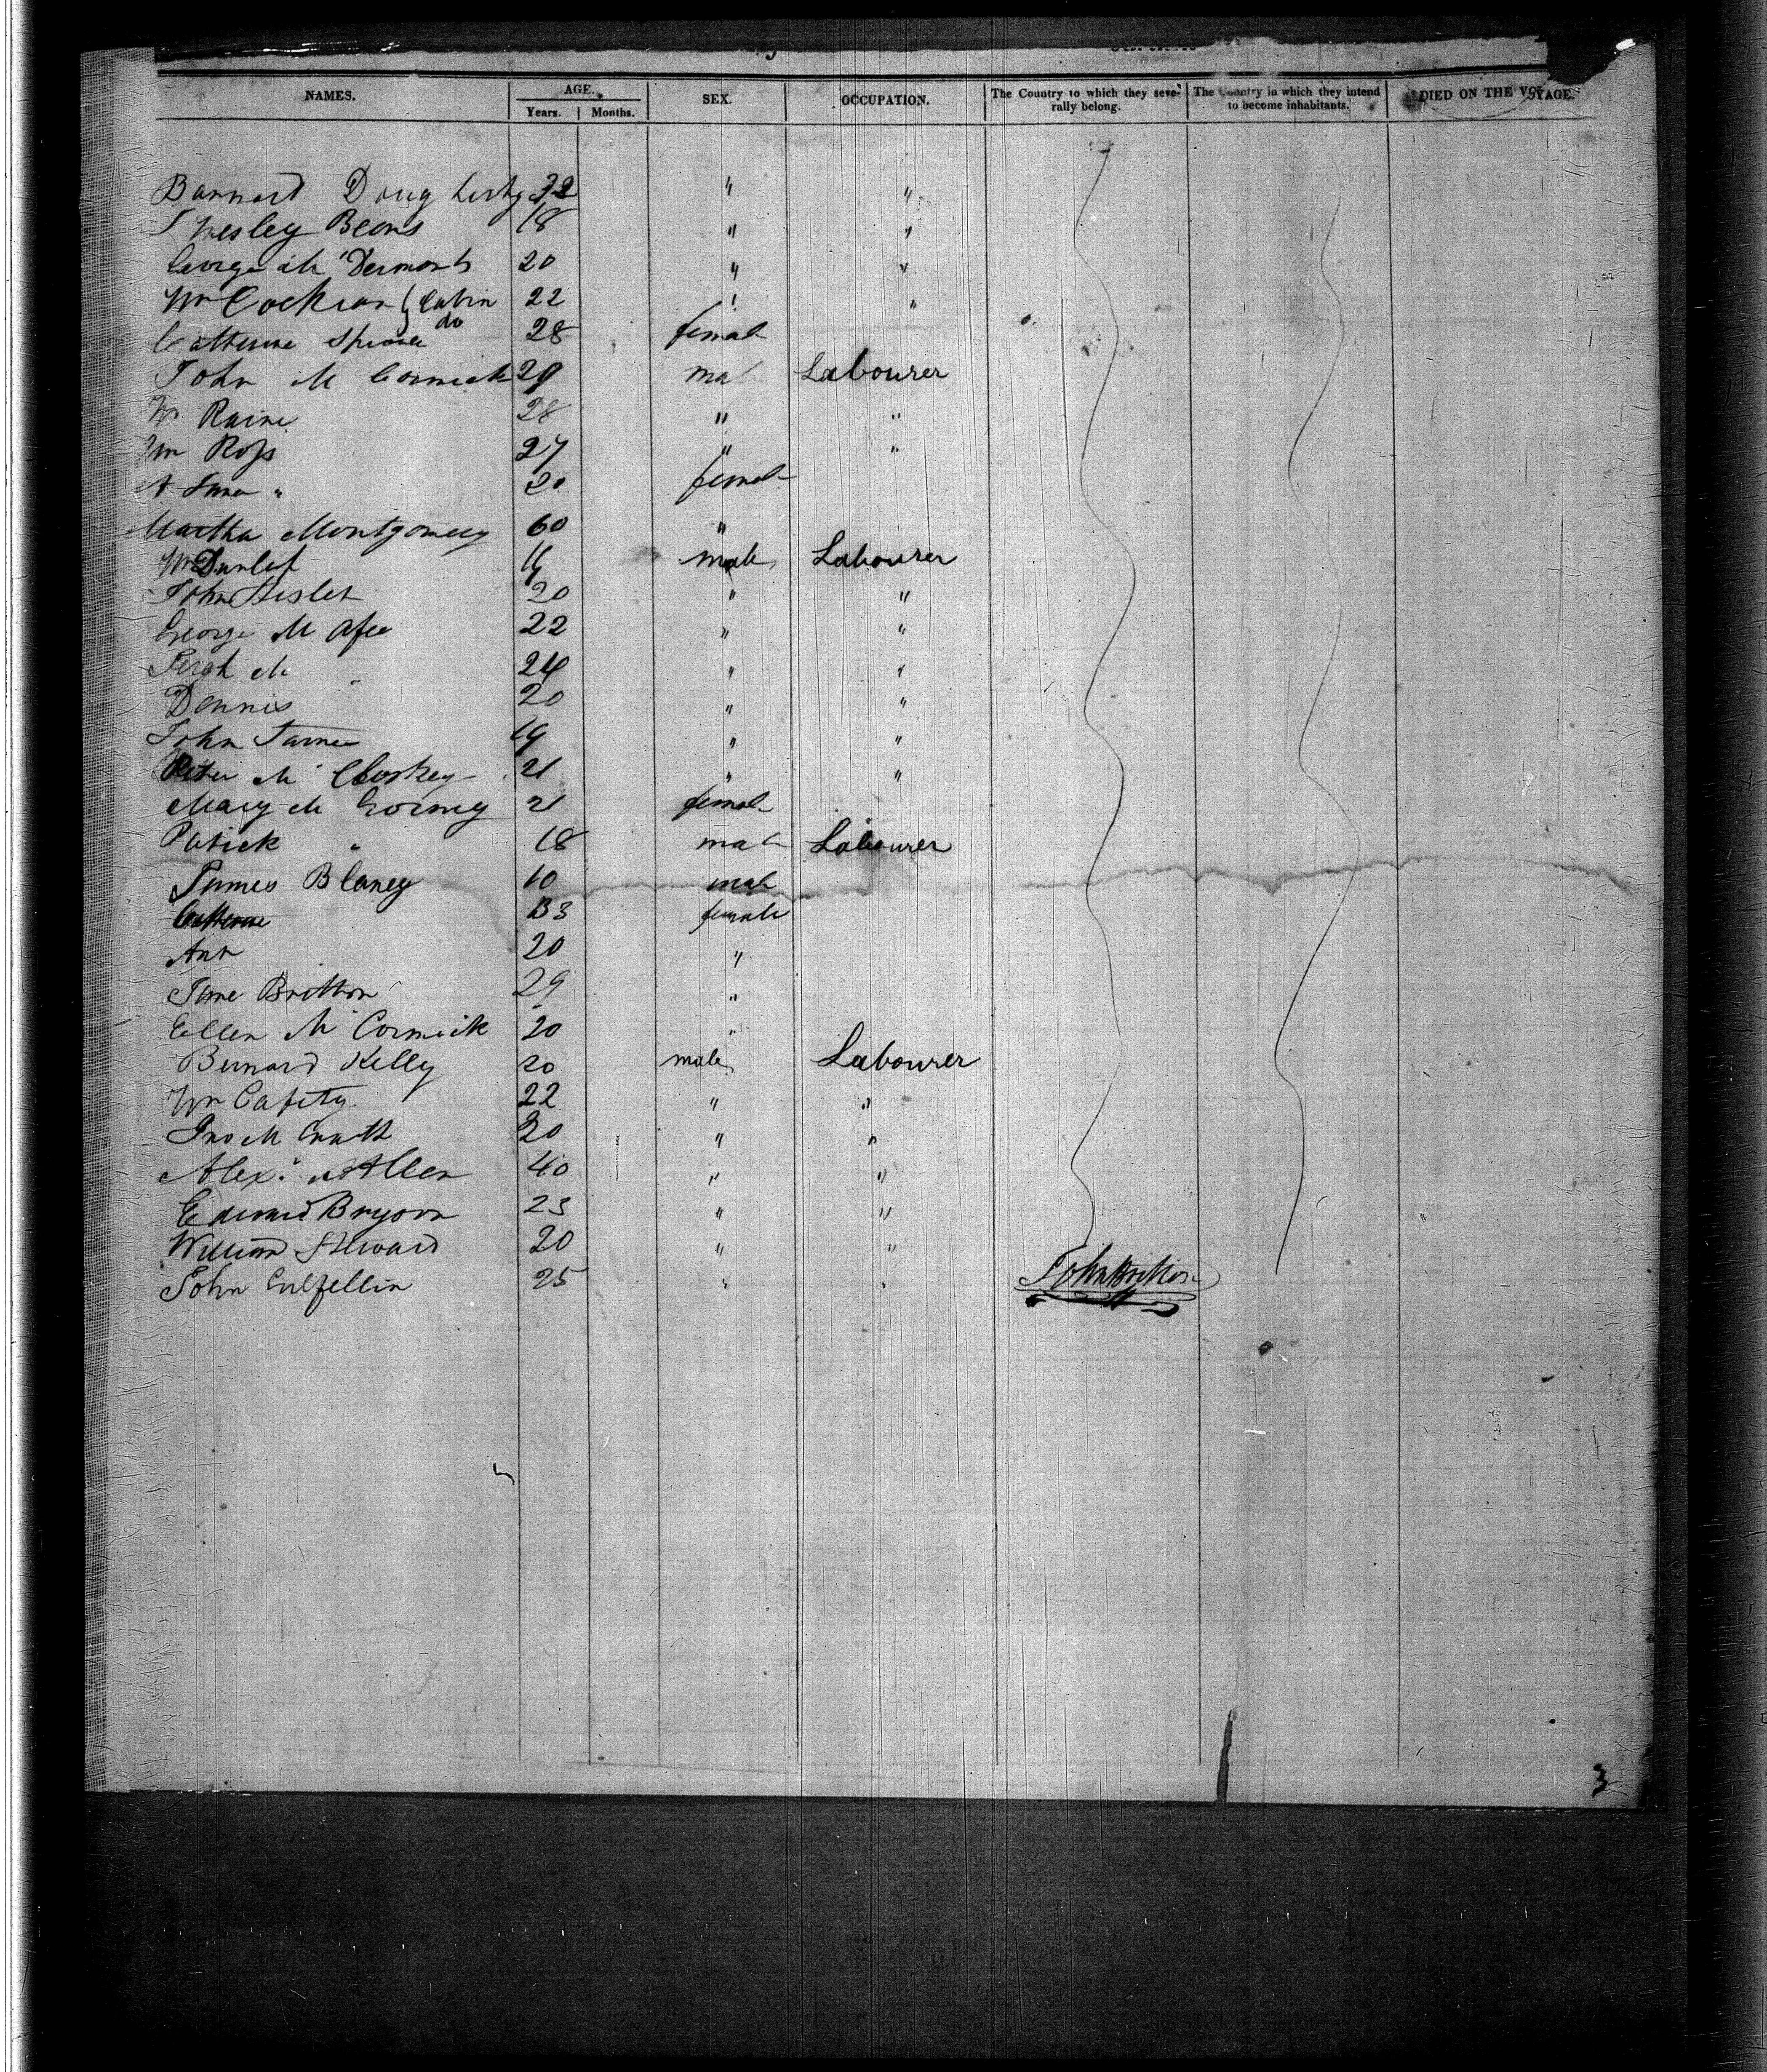 NAMES. AGE. SEX. OCCUPATION. The Country to which they seve- The Country in which they intend DIED ON THE VOYAGE.
Years. Months. rally belong. to become inhabitants.
Barnard Dougherty 32 " "
Wesley Beans 18 " "
George Mc Dermont 20 " "
Wm Cockran Cabin 22 " "
Catherine do 28 female
John M Cormick 29 male Labourer
Raine 28 " "
Wm Ross 27 " "
" 20 female
Martha Montgomery 60 "
Wm Dunlap male Labourer
John 20 " "
George M Afee 22 " "
M " 24 " "
Dennis 20 " "
John 19 " "
Peter Mc Closkey 21 " "
Mary Mc 21 female
Patick " 18 male Labourer
James Blaney 10 male
Catherine female
Ann 20 "
Jane Britton 29 "
Ellen Mc Cormick 20 "
Bernard Kelly 20 male Labourer
Wm Cafity 22 " "
Jno M 20 " "
Alexr Allen 40 " "
Edward Bryson 23 " "
William Steward 20 " "
John 25 " " John Britton
3